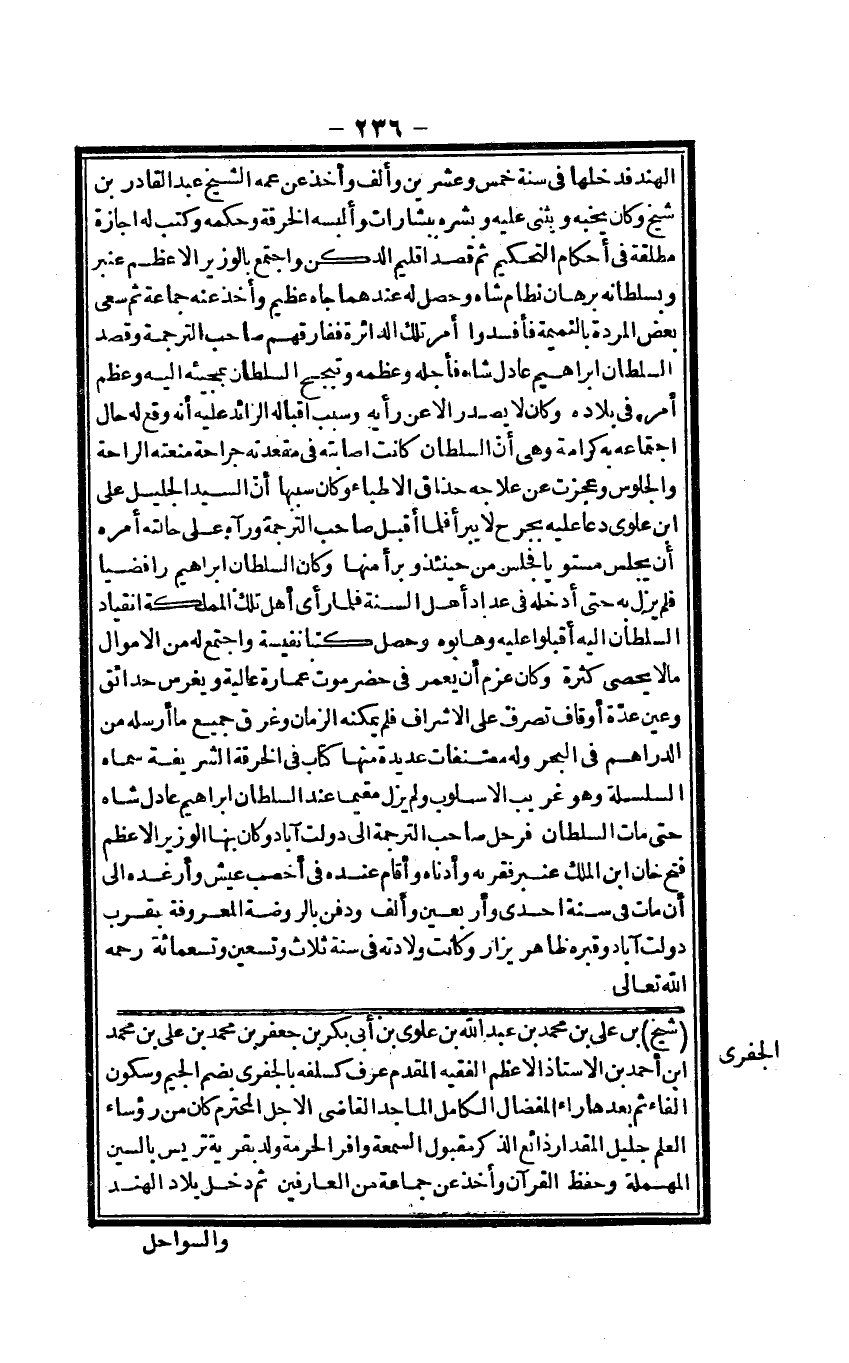 - ٢٣٦ -
الهند فدخلها فى سنة خمس وعشرين وألف وأخذ عن عمه الشيخ عبد القادر بن
شيخ وكان يحبه ويثنى عليه وبشره ببشارات وألبسه الخرقة وحكمه وكتب له اجازة
مطلقة فى أحكام التحكيم ثم قصد اقليم الدكن واجتمع بالوزير الاعظم عنبر
وبسلطانه برهان نظام شاه وحصل له عندهما جاه عظيم وأخذ عنه جماعة ثم سعى
بعض المردة بالنميمة فأفسدوا أمر تلك الدائرة ففارقهم صاحب الترجمة وقصد
السلطان ابراهيم عادل شاه فأجله وعظمه وتبجح السلطان بمجيئه اليه وعظم
أمره فى بلاده وكان لا يصدر الا عن رأيه وسبب اقباله الزائد عليه أنه وقع له حال
اجتماعه به كرامة وهى أنّ السلطان كانت اصابته فى مقعدته جراحة منعته الراحة
والجلوس وعجزت عن علاجه حذاق الاطباء وكان سببها أنّ السيد الجليل على
ابن علوى دعا عليه بجرح لا يبرأ فلما أقبل صاحب الترجمة ورآه على حالته أمره
أن يجلس مستويا فجلس من حينئذ وبرأ منها وكان السلطان ابراهيم رافضيا
فلم يزل به حتى أدخله فى عداد أهل السنة فلما رأى أهل تلك المملكة انقياد
السلطان اليه أقبلوا عليه وهابوه وحصل كتبا نفيسة واجتمع له من الاموال
مالا يحصى كثرة وكان عزم أن يعمر فى حضرموت عمارة عالية ويغرس حدائق
وعين عدّة أوقاف تصرف على الاشراف فلم يمكنه الزمان وغرق جميع ما أرسله من
الدراهم فى البحر وله مصنفات عديدة منها كتاب فى الخرقة الشريفة سماه
السلسلة وهو غريب الاسلوب ولم يزل مقيما عند السلطان ابراهيم عادل شاه
حتى مات السلطان فرحل صاحب الترجمة الى دولت آباد وكان بها الوزير الاعظم
فتح خان ابن الملك عنبر فقربه وأدناه وأقام عنده فى أخصب عيش وأرغده الى
أن مات فى سنة احدى وأربعين وألف ودفن بالروضة المعروفة بقرب
دولت آباد وقبره ظاهر يزار وكانت ولادته فى سنة ثلاث وتسعين وتسعمائة رحمه
الله تعالى
(شيخ) بن على بن محمد بن عبد الله بن علوى بن أبى بكر بن جعفر بن محمد بن على بن محمد
الجفرى
ابن أحمد بن الاستاذ الاعظم الفقيه المقدم عرف كسلفه بالجفرى بضم الجيم وسكون
الفاء ثم بعدها راء المفضال الكامل الماجد القاضى الاجل المحترم كان من رؤساء
العلم جليل المقدار ذائع الذكر مقبول السمعة وافر الحرمة ولد بقرية تريس بالسين
المهملة وحفظ القرآن وأخذ عن جماعة من العارفين ثم دخل بلاد الهند
والسواحل